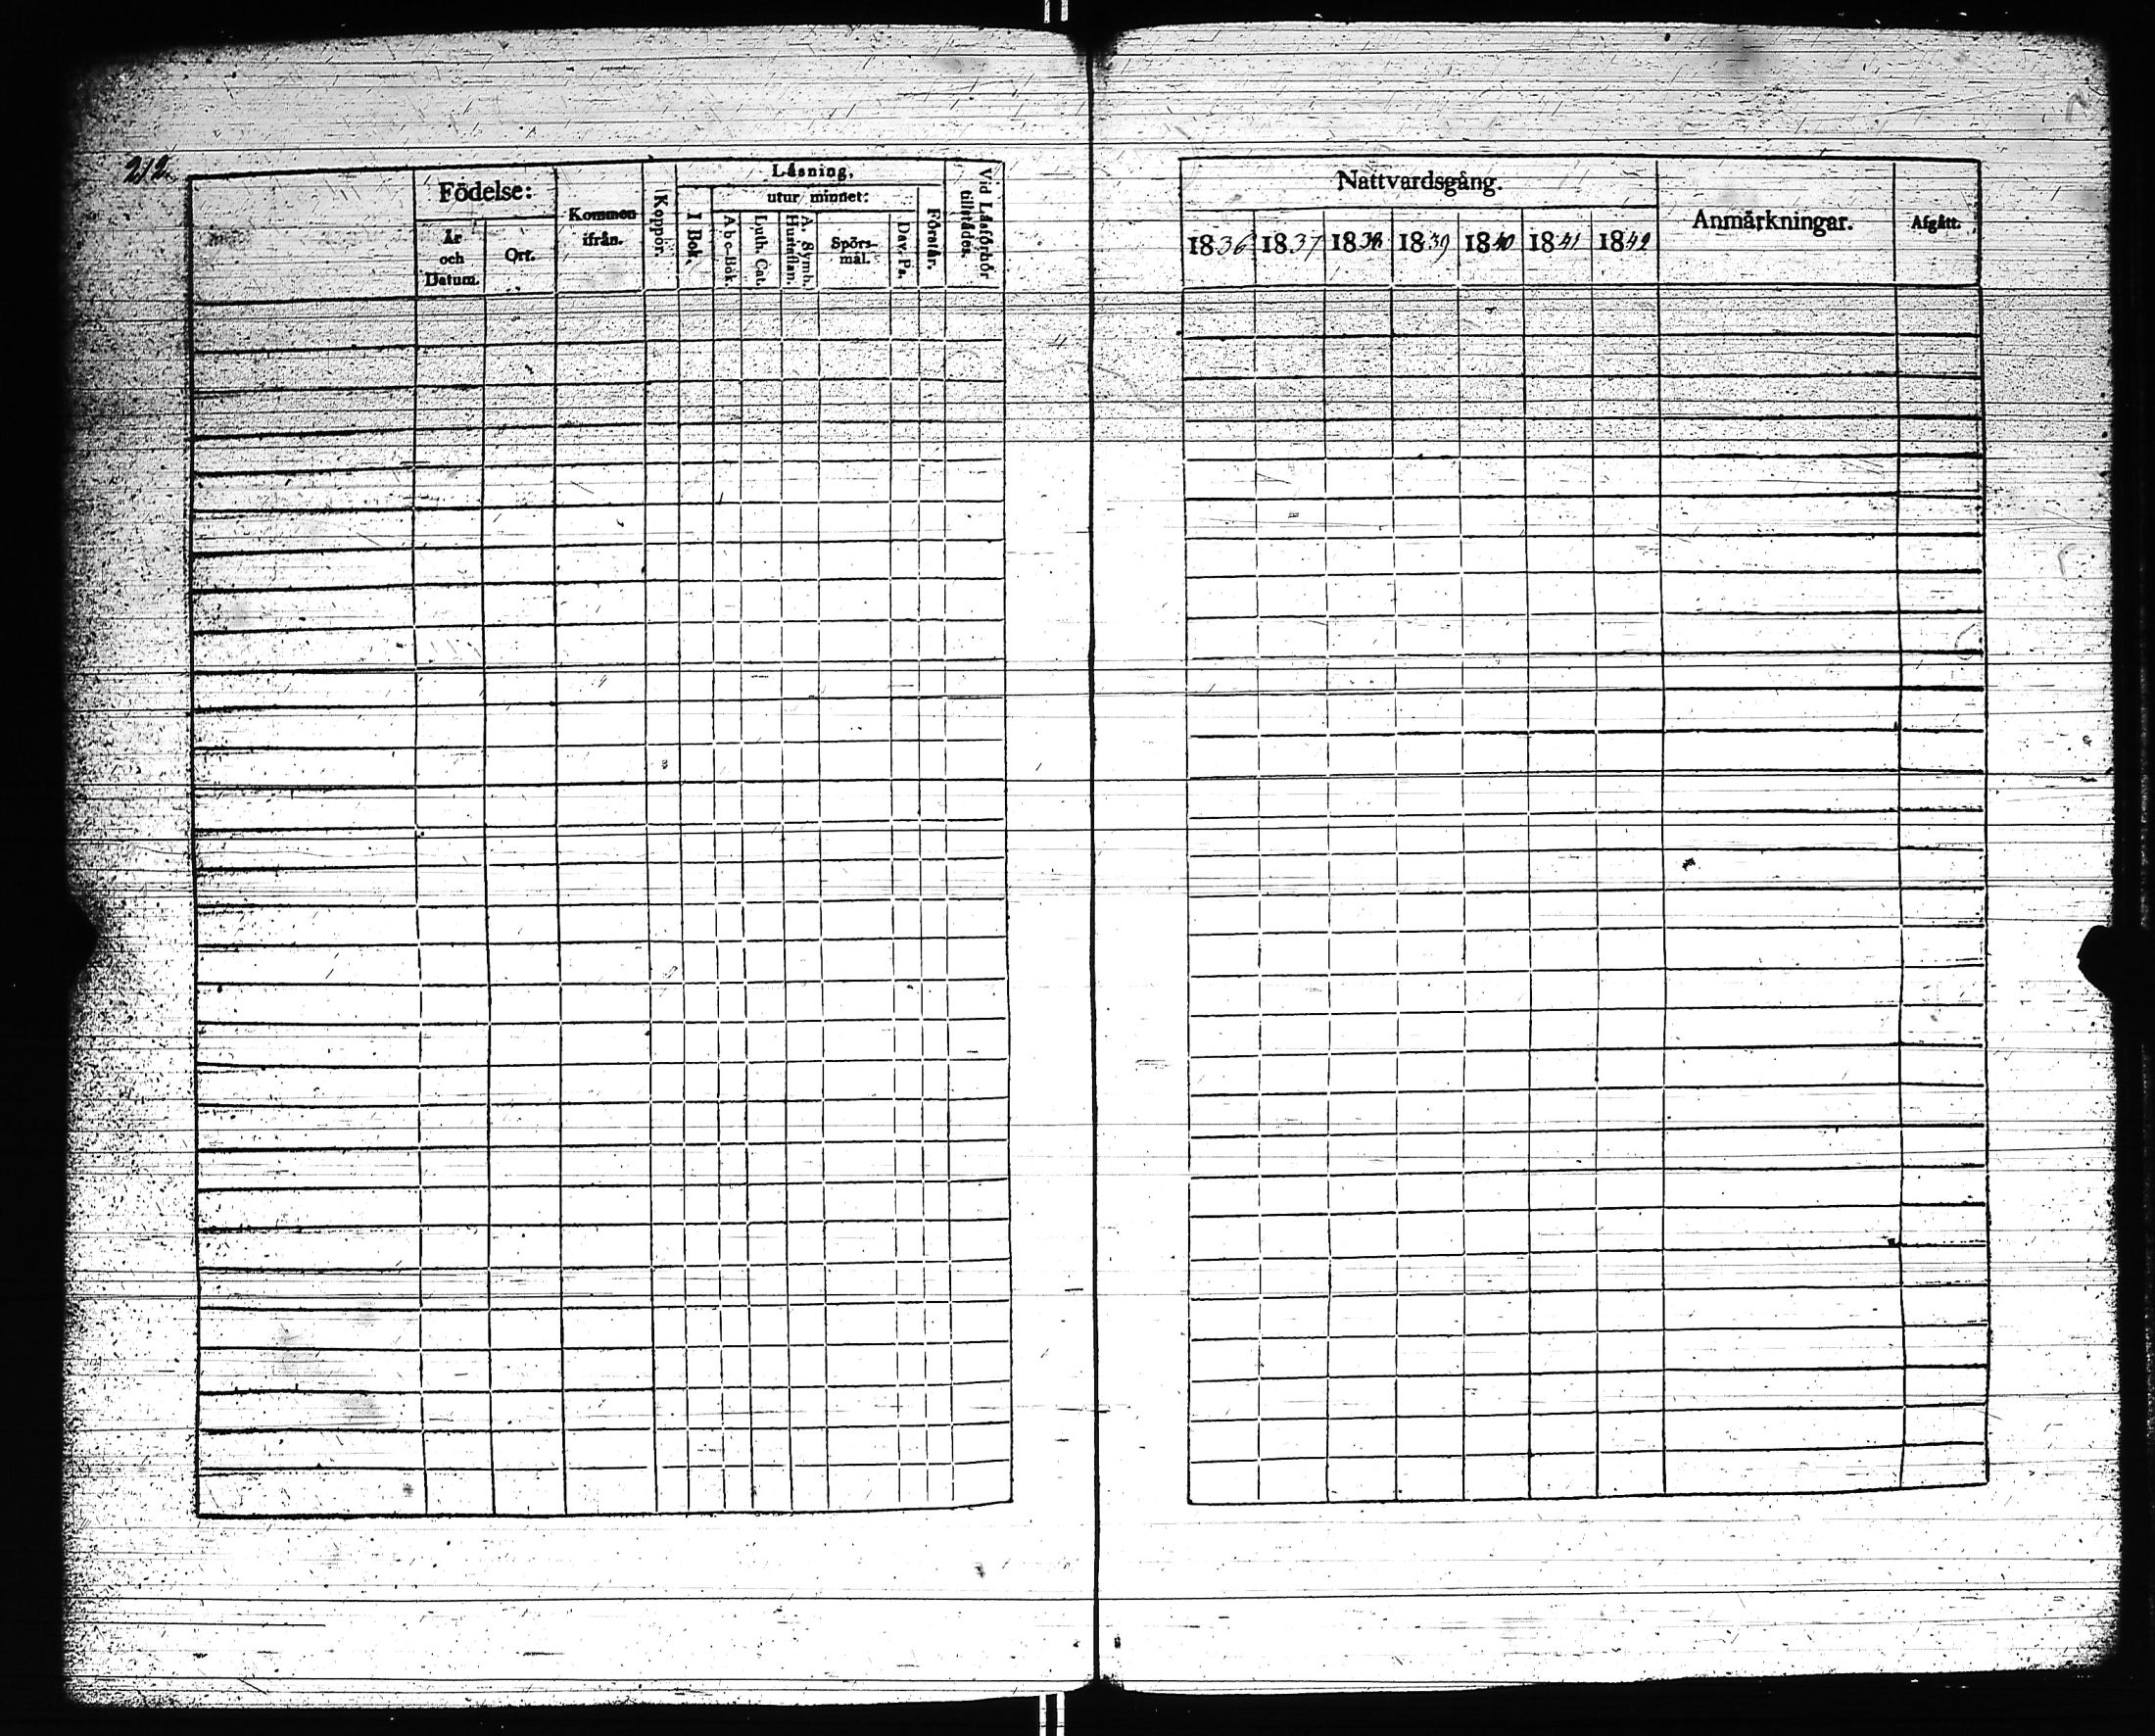 212.
Födelse:
År
och
Datum.
Ort.
Kommen
ifrån.
Koppor.
Läsning,
I Bok.
utur minnet:
Abc-Bok.
Luth. Cat.
A. Symb.
Hustaflan.
Spörs-
mål.
Dav. Ps.
Förstår.
Vid Läsförhör
tillstådes.
Nattvardsgång.
1836 1837 1838 1839 1840 1841 1842
Anmärkningar.
Afgått.